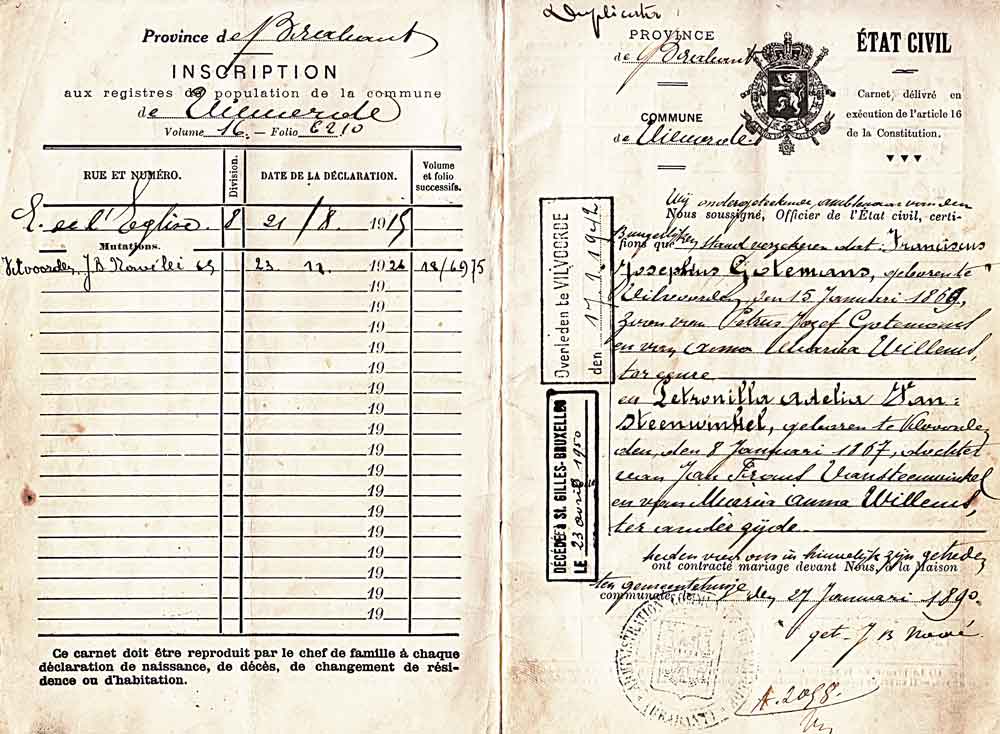 Province de Brabant
INSCRIPTION
aux registres de population de la commune
de Vilvorde
Volume 16. — Folio 6210
RUE ET NUMÉRO.
Division.
DATE DE LA DÉCLARATION.
Volume
et folio
successifs.
R. de l'Eglise. 8 21 / 8. 1915
Mutations.
Vilvoorde, J.B. Nowélei 65 23 12 1926 18/69 75
19
19
19
19
19
19
19
19
19
19
19
19
19
19
19
19
Ce carnet doit être reproduit par le chef de famille à chaque
déclaration de naissance, de décès, de changement de rési-
dence ou d'habitation.
Duplicata
PROVINCE
de Brabant
COMMUNE
de Vilvorde.
ÉTAT CIVIL
Carnet, délivré en
exécution de l'article 16
de la Constitution.
Overleden te VILVOORDE
den 17.1.1942
DÉCÉDÉE À ST. GILLES-BRUXELLES
LE 23 avril 1950
Wij ondergeteekende ambtenaar van den
Nous soussigné, Officier de l'État civil, certi-
Burgerlijken stand verzekeren dat: Franciscus
fions que
Josephus Gotemans, geboren te
Vilvoorde, den 15 Januari 1869,
zoon van Petrus Jozef Gotemans
en van Anna Maria Willems,
ter eenre
en Petronilla Adelia Van-
steenwinkel, geboren te Vilvoor-
den, den 8 Januari 1867, dochter
van Jan Frans Vansteenwinkel
en van Maria Anna Willems,
ter andere zijde.
heden voor ons in huwelijk zijn getreden
ont contracté mariage devant Nous, à la Maison
ten gemeentehuize den 27 Januari 1890.
communale de
get. J B Nowé.
A. 2058.